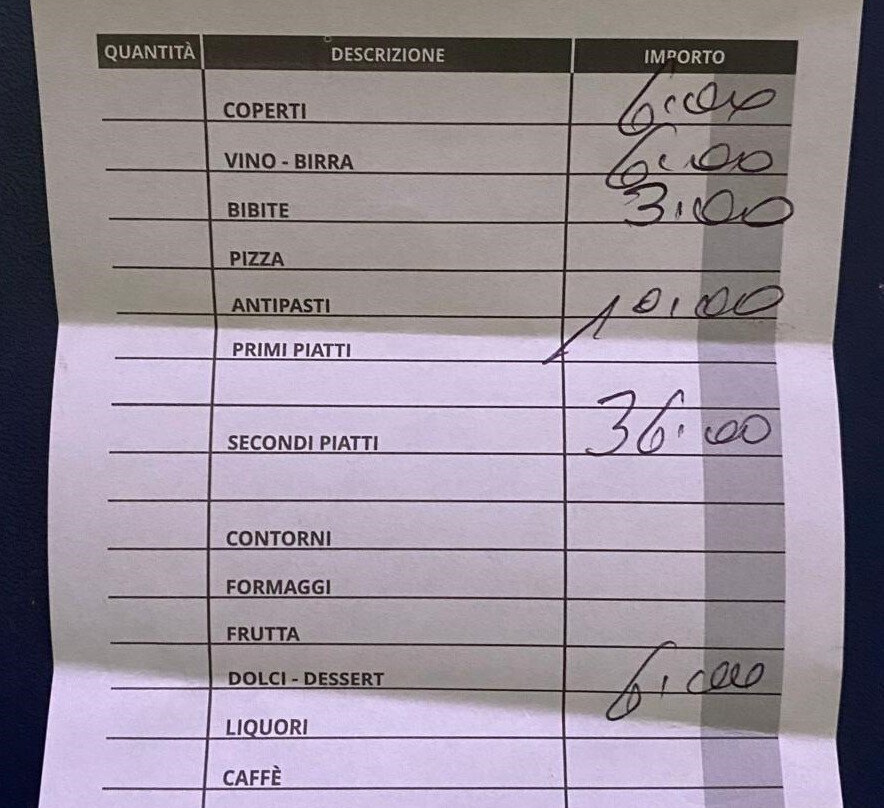 QUANTITÀ DESCRIZIONE IMPORTO
COPERTI 6.00
VINO - BIRRA 6.00
BIBITE 3.00
PIZZA
ANTIPASTI 10.00
PRIMI PIATTI
SECONDI PIATTI 36.00
CONTORNI
FORMAGGI
FRUTTA
DOLCI - DESSERT 6.00
LIQUORI
CAFFÈ